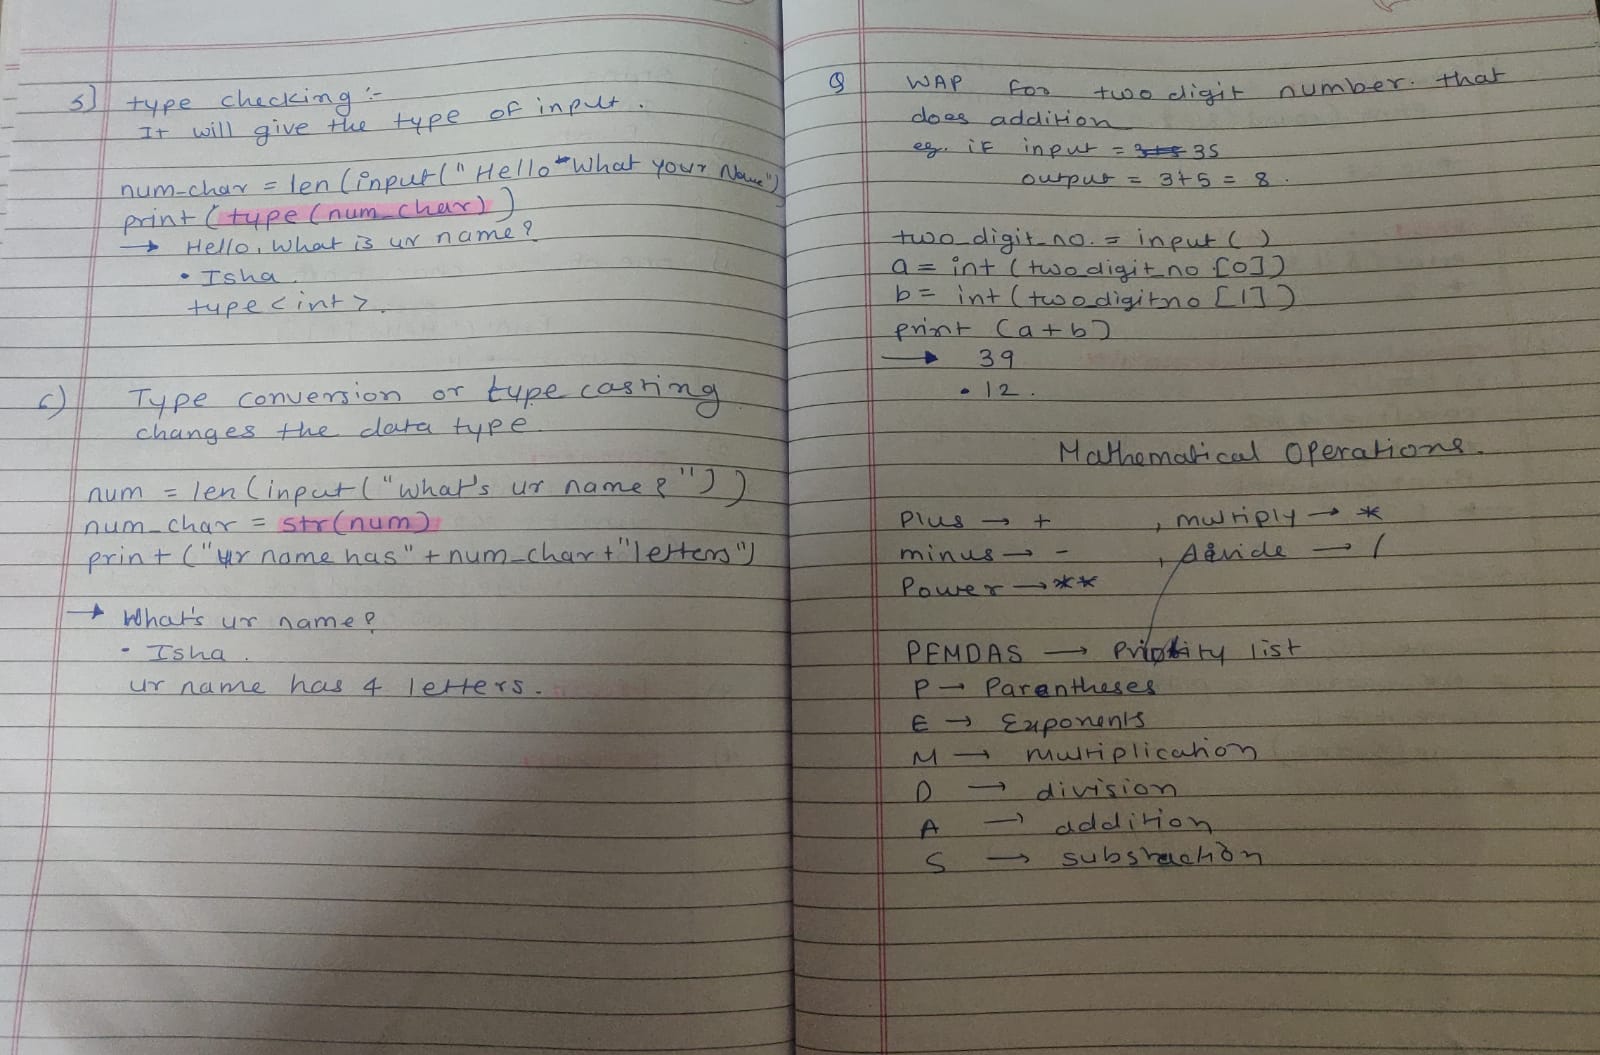 5] type checking :-
It will give the type of input.
num_char = len(input("Hello What your Name")
print(type(num_char))
→ Hello, What is ur name?
• Isha.
type<int>.
6) Type conversion or type casting
changes the data type.
num = len(input("What's ur name?"))
num_char = str(num)
print("ur name has" + num_char + "letters")
→ What's ur name?
• Isha.
ur name has 4 letters.
Q WAP for two digit number. that
does addition
eg. if input = 3+5 35
output = 3+5 = 8.
two_digit_no. = input()
a = int(two digit_no [0])
b = int(two digitno [1])
print (a+b)
→ 39
• 12.
Mathematical Operations.
Plus → + , multiply → *
minus → - , divide → /
Power → **
PEMDAS → Priority list
P → Parantheses
E → Exponents
M → multiplication
D → division
A → addition
S → substraction